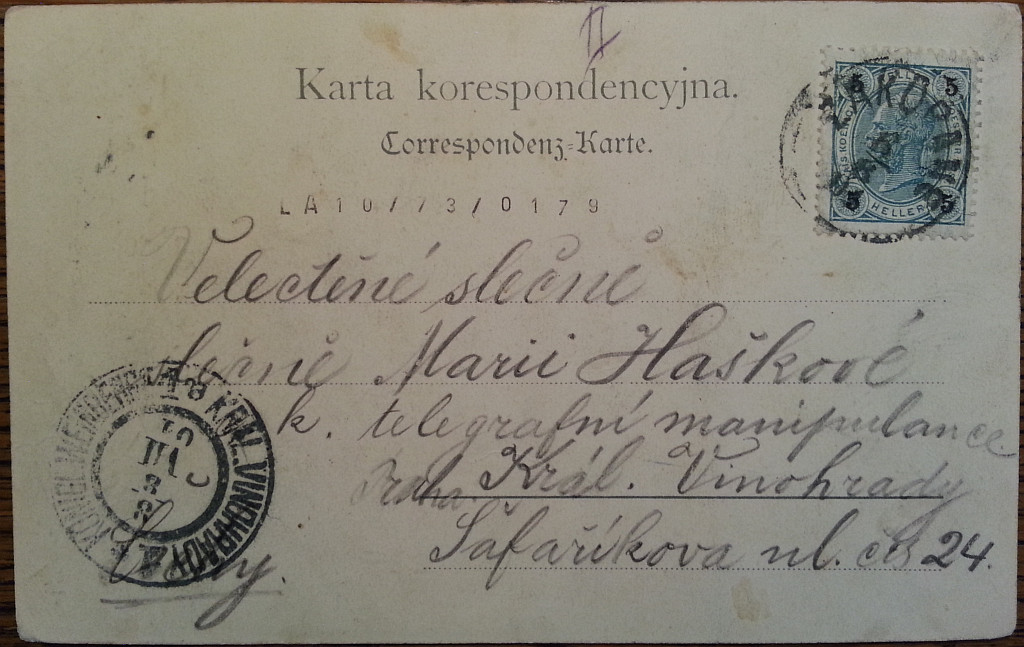 II
Karta korespondencyjna.
Correspondenz-Karte.
LA10/73/0179
5 HELLER 5
5 HELLER 5
ZAKOPANE
Velectěné slečně
slečně Marii Haškové
k. telegrafní manipulance
Praha Král. Vinohrady
Šafaříkova ul. čís 24.
KRÁL. VINOHRADY